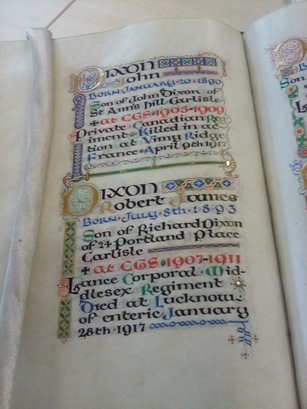 DIXON
John
BORN·JANUARY·20·1890
Son of John Dixon of
St Ann's hill Carlisle
+ at CGS·1905-1909
Private Canadian Reg
iment Killed in ac
tion at Vimy Ridge
France April 9th 1917
DIXON
Robert Jeanes
BORN·July·8th·1893
Son of Richard Dixon
of 24 Portland Place
Carlisle
+ at CGS·1907-1911
Lance Corporal Mid-
dlesex Regiment
Died at Lucknow
of enteric January
28th·1917